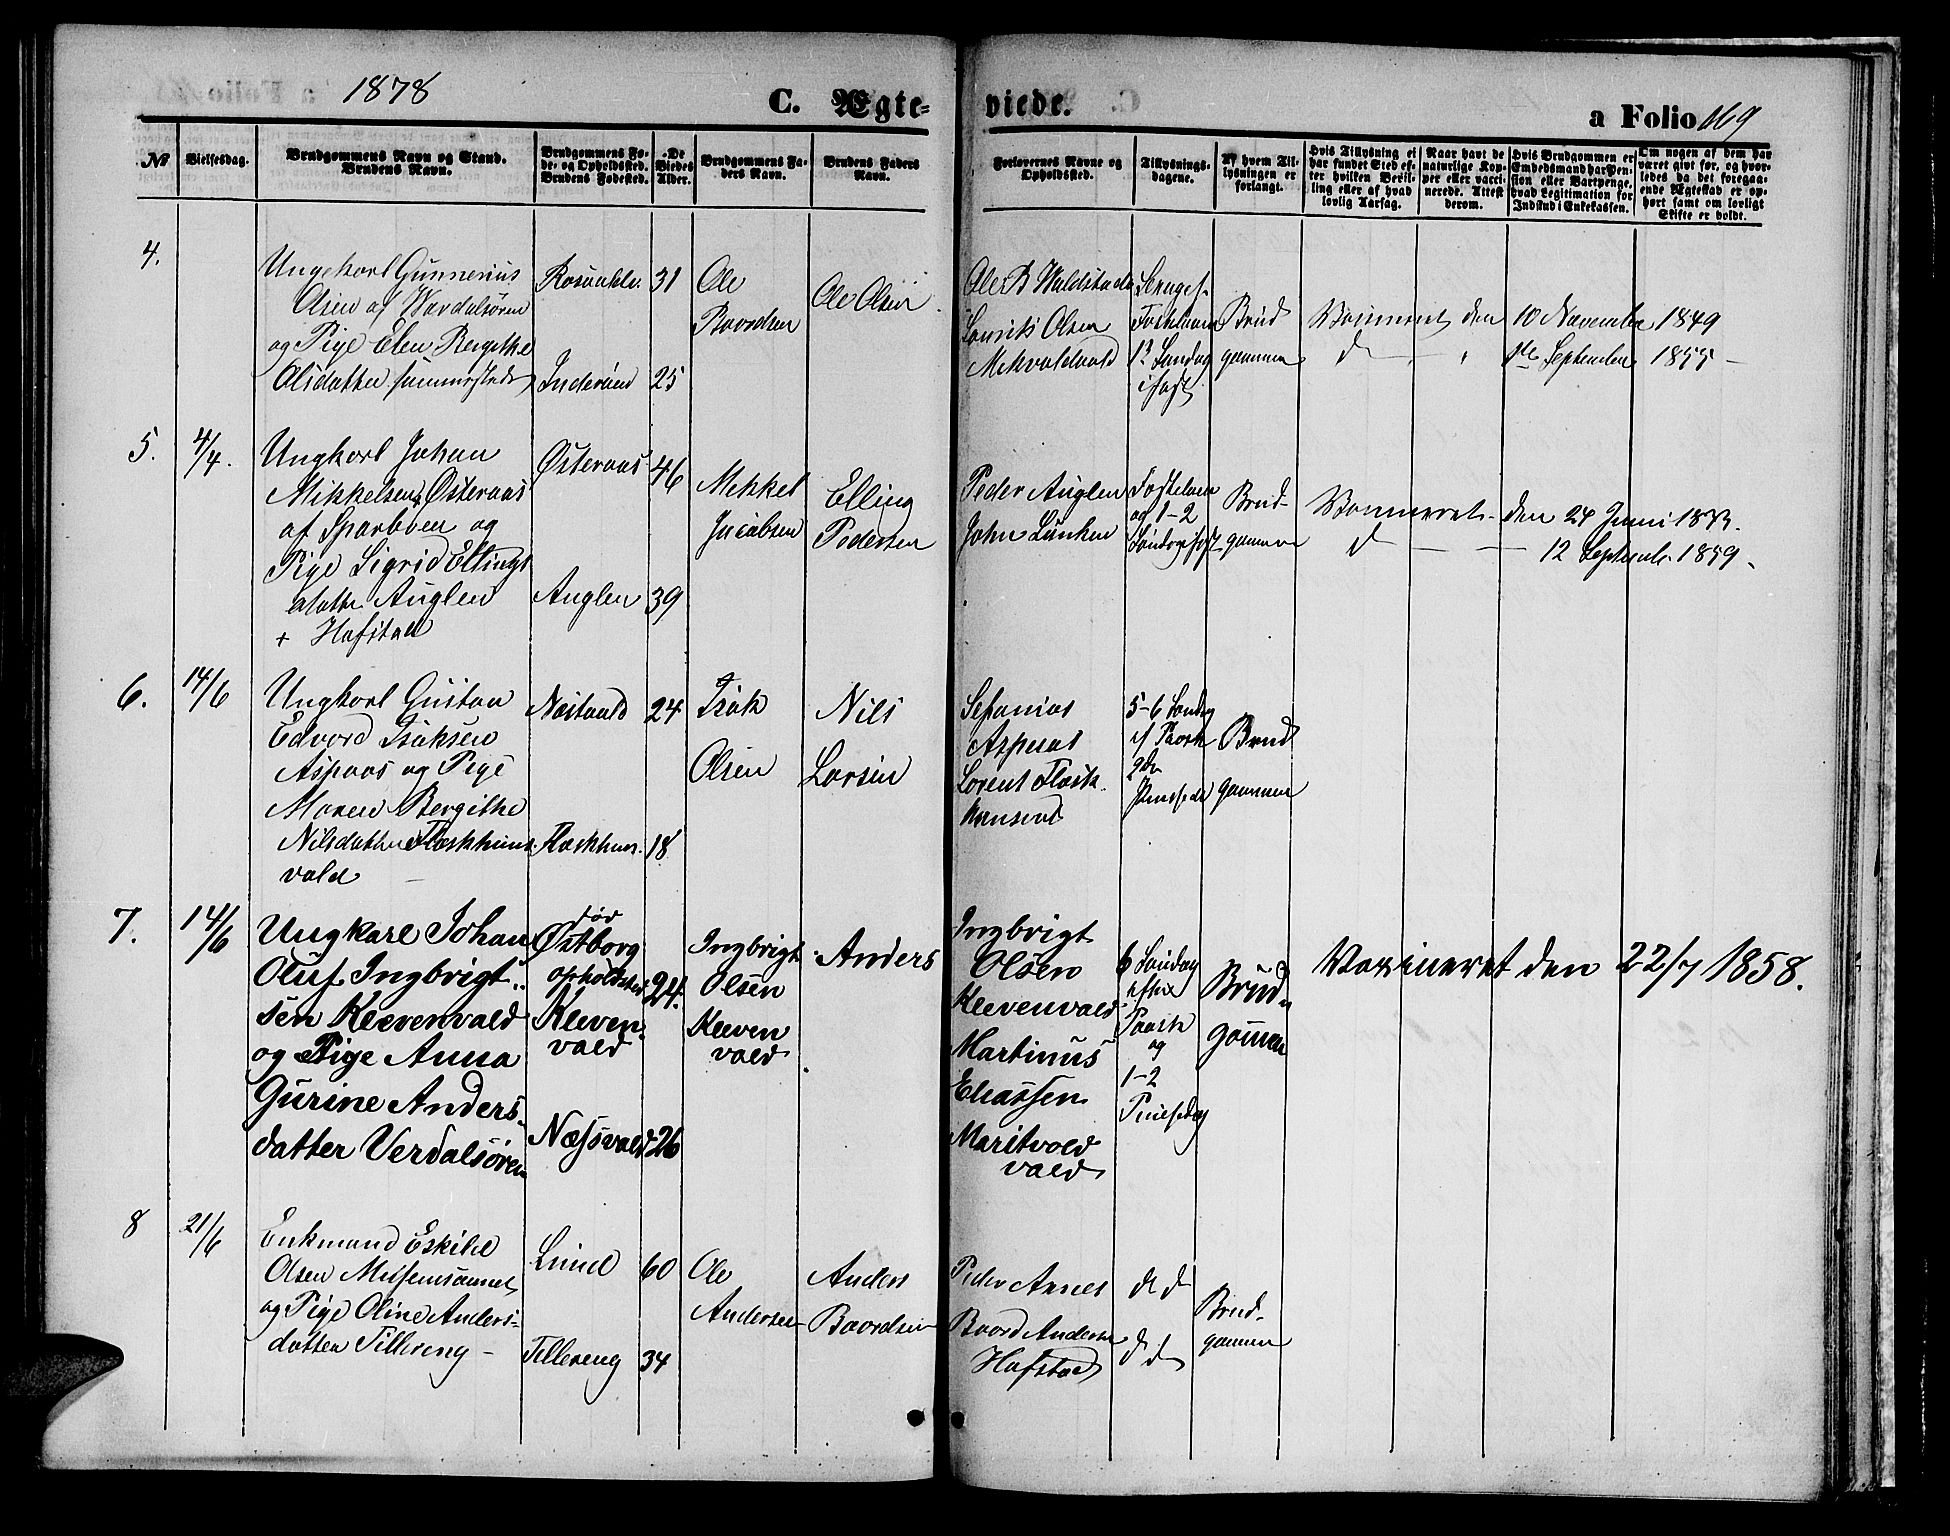 1878
C. Ægte-
viede.
a Folio 169
№
Vielsesdag.
Brudgommens Navn og Stand.
Brudens Navn.
Brudgommens Fø-
de- og Opholdssted.
Brudens Fødested.
De
Viedes
Alder.
Brudgommens Fa-
ders Navn.
Brudens Faders
Navn.
Forlovernes Navne og
Opholdssted.
Tillysnings-
dagene.
Af hvem Til-
lysningen er
forlangt.
Hvis Tillysning ei
har fundet Sted ef-
ter hvilken Bevil-
ling eller af hvad
lovlig Aarsag.
Naar havt de
naturlige Kop-
per eller vacci-
nerede. Attest
derom.
Hvis Brudgommen er
Embedsmand har Pen-
sion eller Vartpenge,
hvad Legitimation for
Indskud i Enkekassen.
Om nogen af dem har
været givt før, og hvor-
ledes da det foregaa-
ende Ægteskab er op-
hørt samt om lovligt
Skifte er holdt.
4.
Ungekarl Gunnerius
Olsen af Værdalsøren
og Pige Elen Bergithe
Olsdatter sammesteds
Inderøen
31
25
Ole
Baardsen
Ole Olsen
Olsen
13 Søndag
i Fast
Brud
gommen
Vaccineret den 10 November 1849
d September 1855
5.
4/4.
Ungkarl Johan
Mikkelsen Østeraas
af Sparbuen og
Pige Sigrid Ellings
datter Auglen
+ Hafstad
Østeraas
Auglen
46
39
Mikkel
Jacobsen
Elling
Pedersen
Peder Auglen
John
Fastelavn
og 1-2
Søndag i Fast
Brud-
gommen
Vaccineret den 24 Juni
d 12 Septemb. 1859.
6.
14/6
Ungkarl Gustav
Edvard Isaksen
Aspaas og Pige
Maren Bergithe
Nilsdatter Flaskhus
vald
Næsvald
Flaskhus
24
18
Isak
Olsen
Nils
Larsen
Sefanias
Aspaas
Lorents Flask
5-6 Søndag
ef Paask
2den
Pinsedag
Brud
gommen
7.
14/6
Ungkarl Johan
Oluf Ingbrigt-
sen Kleevenvald
og Pige Anna
Gurine Anders-
datter Verdalsøren
fød
Østborg
opholdsted
Kleven
vald
Næssvald
24.
26
Ingbrigt
Olsen
Kleven
vald
Anders
Ingbrigt
Olsen
Kleevenvald
Martinus
Eliassen
Maritvold
vald
6 Søndag
efter
Paask
og
1-2
Pinsedag
Brud-
gommen
Vaxineret den 22/7 1858.
8
21/6
Enkmand Eskild
Olsen
og Pige Oline Anders-
datter Tillereng
Lund
Tillereng
60
34
Ole
Andersen
Anders
Baardsen
Peder
Baard Andersen
Hafstad
d d
d d
Brud-
gommen